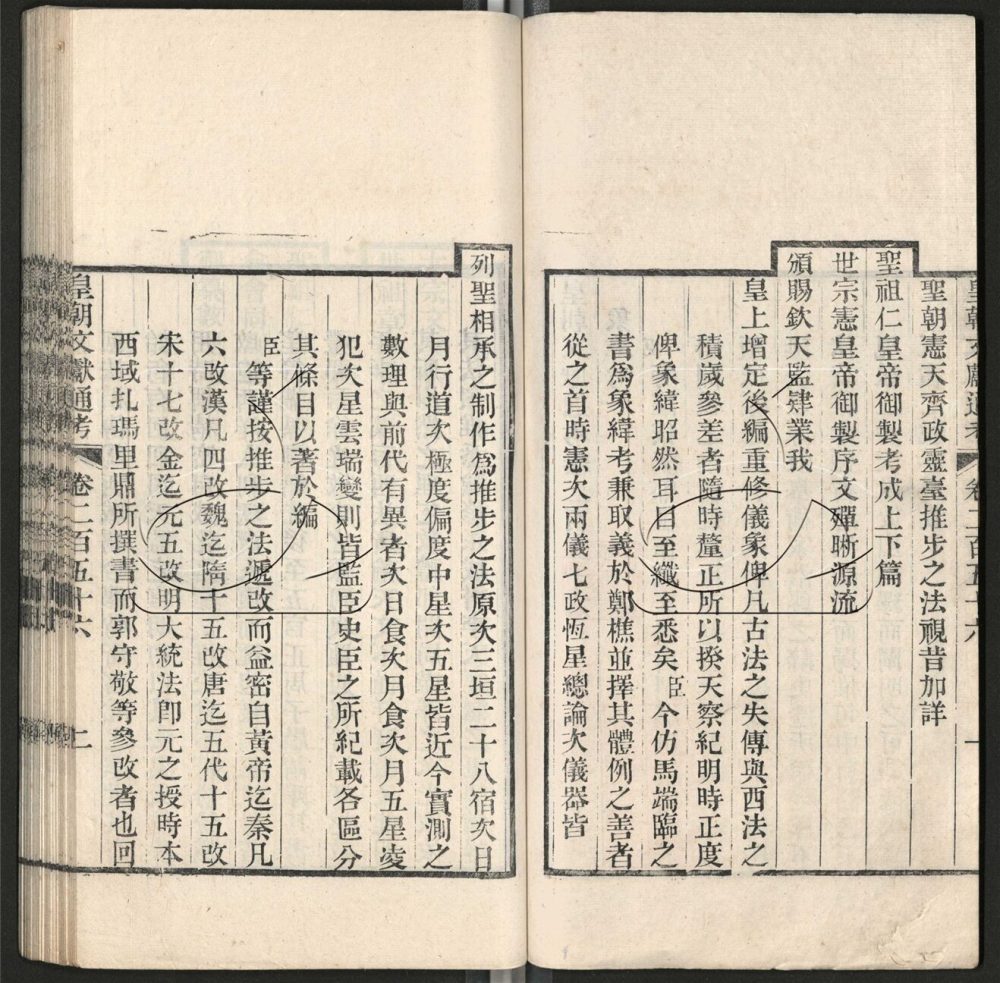 皇朝文獻通考 卷二百五十六 一
聖朝憲天齊政靈臺推步之法視昔加詳
聖祖仁皇帝御製考成上下篇
世宗憲皇帝御製序文殫晰源流
頒賜欽天監肄業我
皇上增定後編重修儀象俾凡古法之失傳與西法之
積歲參差者隨時釐正所以揆天察紀明時正度
俾象緯昭然耳目至纖至悉矣臣今仿馬端臨之
書為象緯考兼取義於鄭樵並擇其體例之善者
從之首時憲次兩儀七政恆星總論次儀器皆
列聖相承之制作為推步之法原次三垣二十八宿次日
月行道次極度偏度中星次五星皆近今實測之
數理與前代有異者次日食次月食次月五星凌
犯次星雲瑞變則皆監臣史臣之所紀載各區分
其條目以著於編
臣等謹按推步之法遞改而益密自黃帝迄秦凡
六改漢凡四改魏迄隋十五改唐迄五代十五改
宋十七改金迄元五改明大統法卽元之授時本
西域扎瑪里鼎所撰書而郭守敬等參改者也回
皇朝文獻通考 卷二百五十六 二